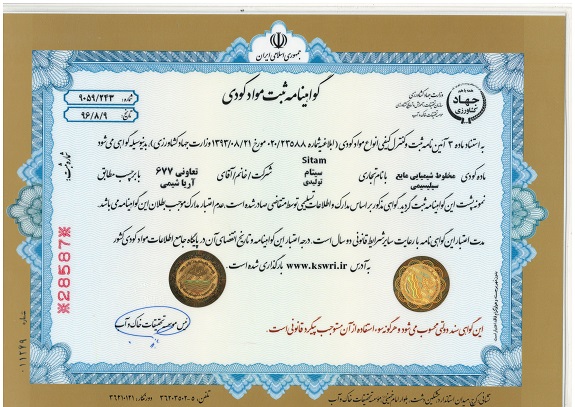 جمهوری اسلامی ایران
گواهینامه ثبت مواد کودی
شماره: ۹۰۵۹/۲۴۳
تاریخ: ۹۶/۸/۹
وزارت جهاد کشاورزی
جهاد کشاورزی
به استناد ماده ۳ آئین نامه ثبت و کنترل کیفی انواع مواد کودی (ابلاغیه شماره ۰۲۰/۲۳۵۸۸ مورخ ۱۳۹۳/۰۸/۲۱ وزارت جهاد کشاورزی)، بدینوسیله گواهی می شود
ماده کودی مخلوط شیمیایی مایع سیلیسیمی با نام تجاری Sitam سیتام تولیدی شرکت / خانم / آقای تعاونی ۶۷۷ آریا شیمی با برچسب مطابق
نمونه پشت این گواهینامه ثبت گردید. گواهی مذکور بر اساس مدارک و اطلاعات تسلیمی توسط متقاضی صادر شده است. عدم اعتبار مدارک موجب بطلان این گواهینامه می باشد.
مدت اعتبار این گواهی نامه با رعایت سایر شرایط قانونی دو سال است. درجه اعتبار این گواهینامه و تاریخ انقضای آن در پایگاه جامع اطلاعات مواد کودی کشور
به آدرس www.kswri.ir بارگذاری شده است.
رئیس موسسه تحقیقات خاک و آب
این گواهی سند دولتی محسوب می شود و هرگونه سوء استفاده از آن مستوجب پیگرد قانونی است.
شماره ثبت:
*28587*
شماره ۰۱۱۲۷۹
نشانی: کرج، میدان استاندارد، مشکین دشت، بلوار امام خمینی، موسسه تحقیقات خاک و آب
تلفن: ۵-۳۶۲۰۳۵۰۲ دورنگار: ۳۶۲۱۰۱۲۱